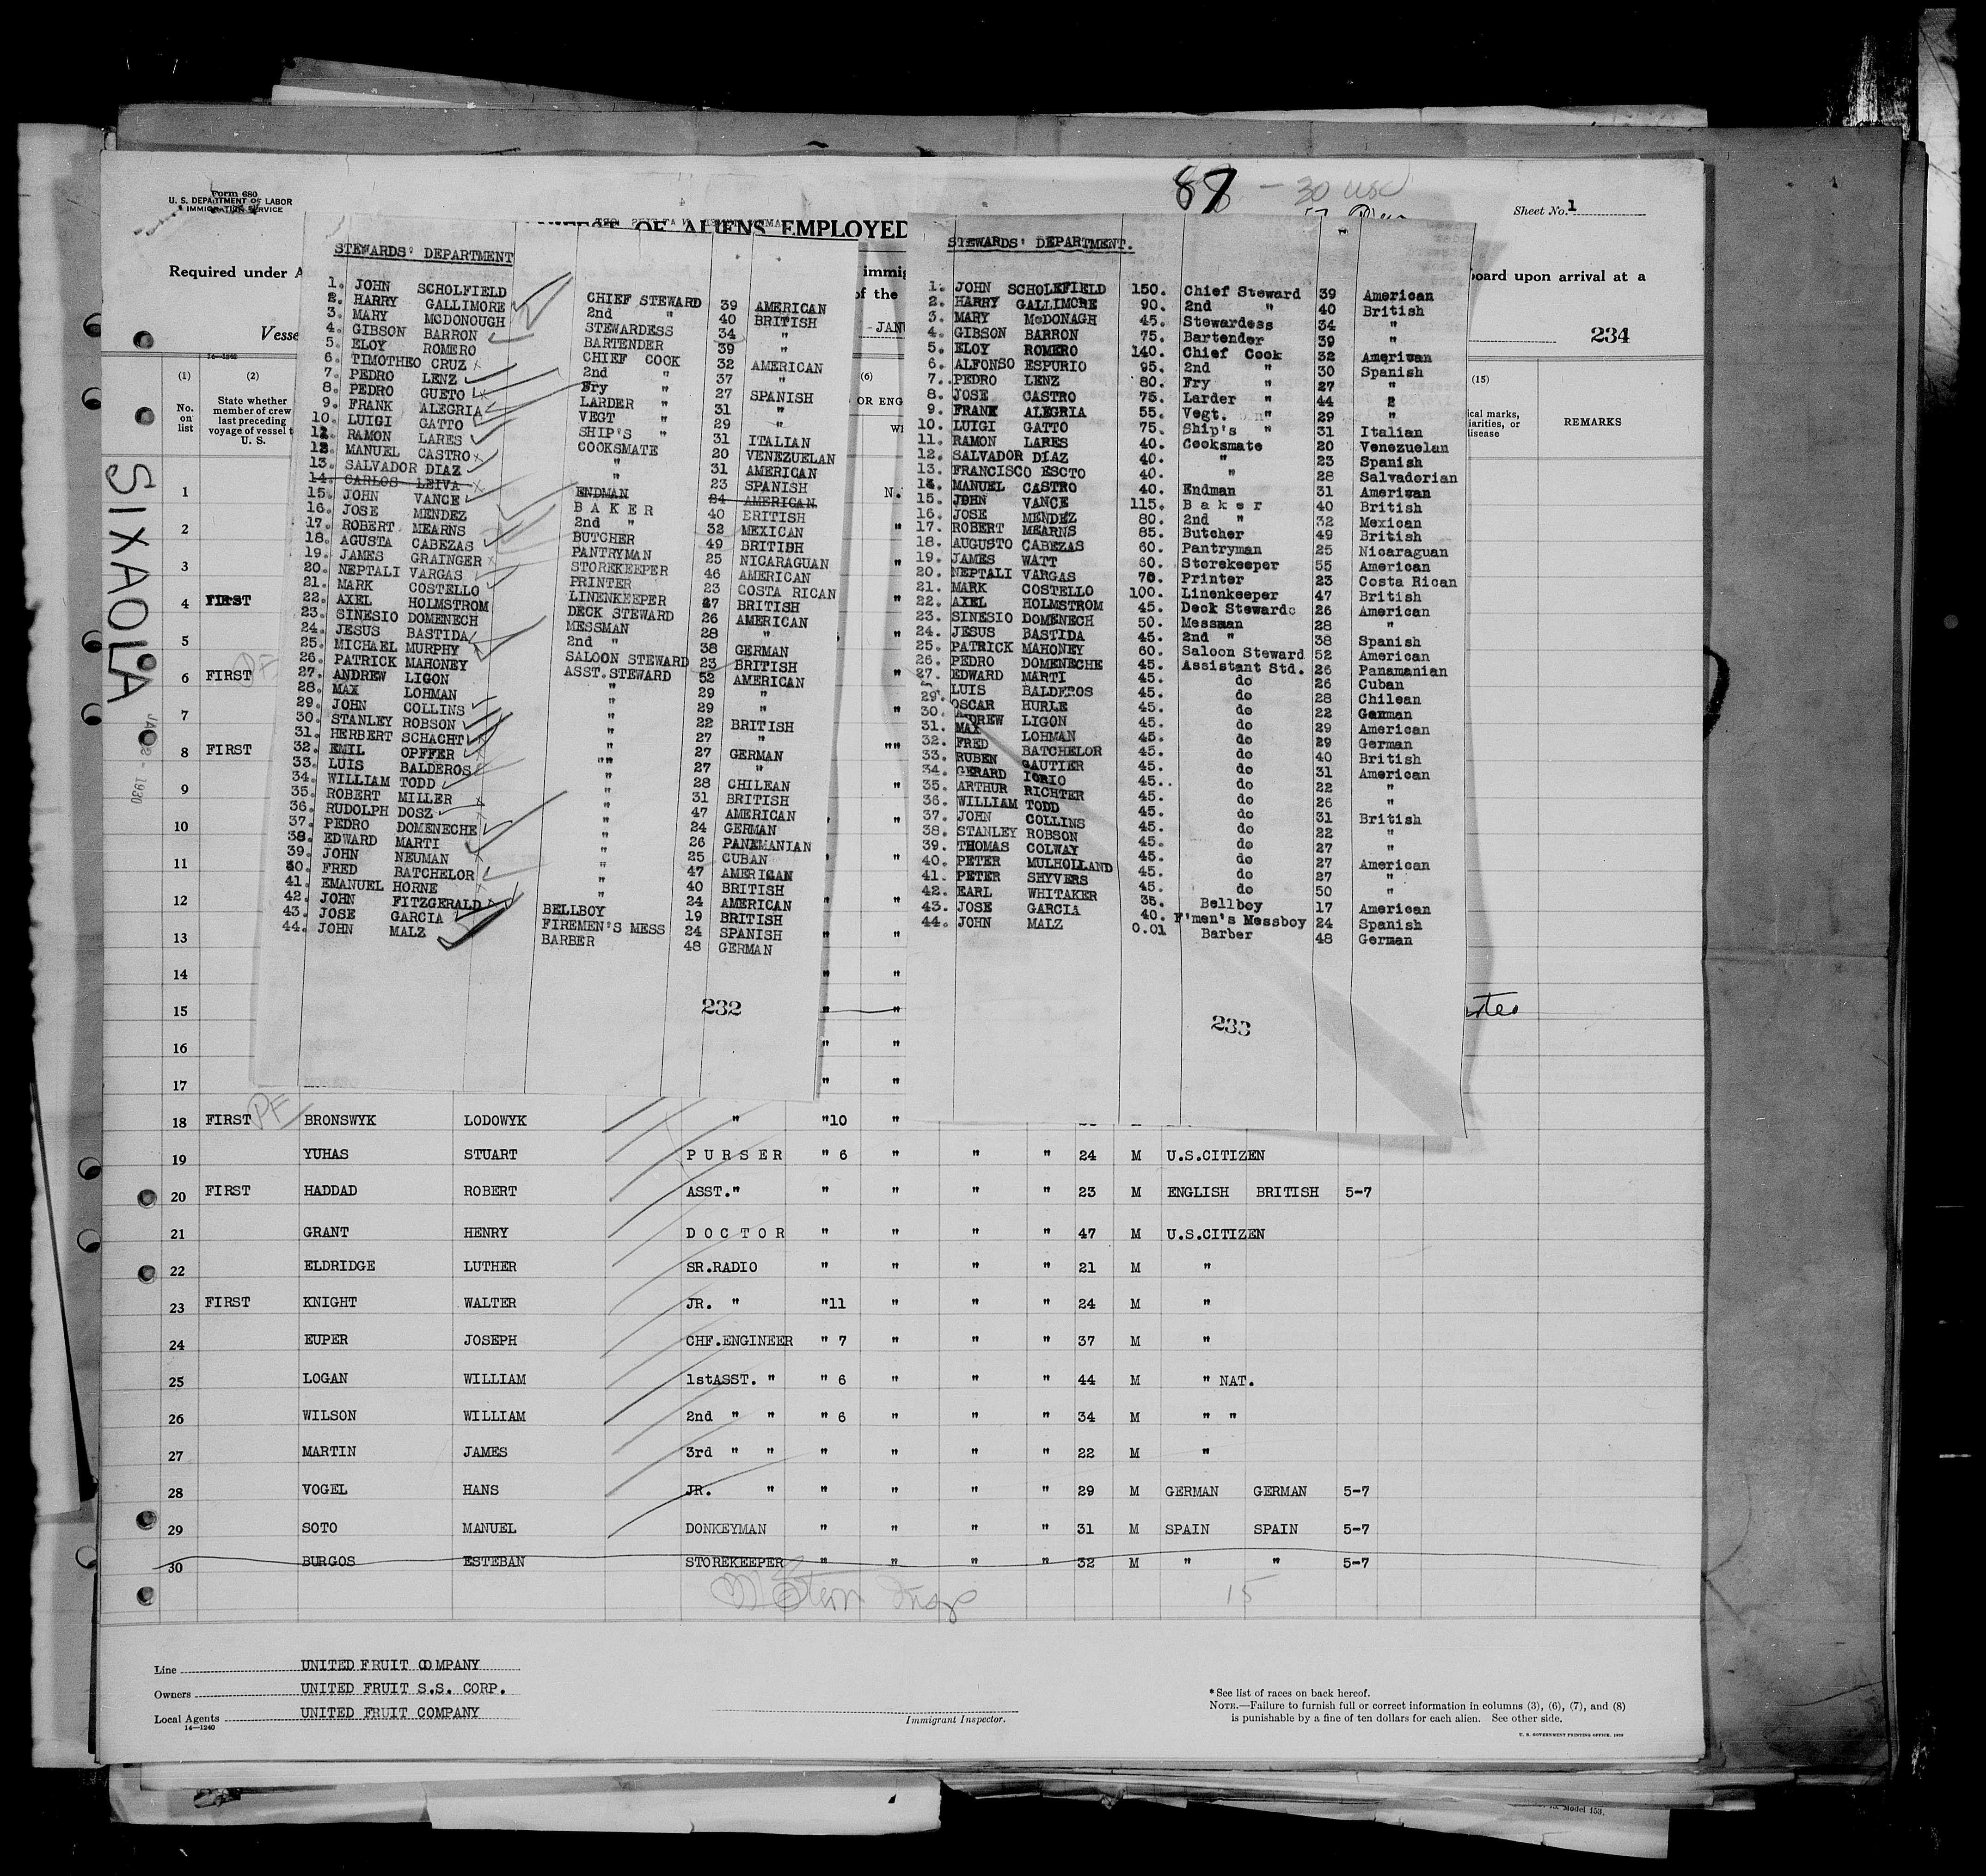 Form 680
U. S. DEPARTMENT OF LABOR
IMMIGRATION SERVICE
87 - 30 USC
Sheet No. 1
OF ALIENS EMPLOYED
Required under A
immig
board upon arrival at a
of the
Vesse
JANU
234
14-1240
(1) (2) (6) (15)
No. on list
State whether member of crew last preceding voyage of vessel t U. S.
OR ENG
ical marks, iarities, or disease
REMARKS
SIXAOLA
JAN 2 - 1930
STEWARDS' DEPARTMENT
1. JOHN SCHOLFIELD CHIEF STEWARD 39 AMERICAN
2. HARRY GALLIMORE 2nd " 40 BRITISH
3. MARY McDONOUGH STEWARDESS 34 "
4. GIBSON BARRON BARTENDER 39 "
5. ELOY ROMERO CHIEF COOK 32 AMERICAN
6. TIMOTHEO CRUZ 2nd " 37 "
7. PEDRO LENZ Fry " 27 SPANISH
8. PEDRO GUETO LARDER " 31 "
9. FRANK ALEGRIA VEGT " 29 "
10. LUIGI GATTO SHIP'S " 31 ITALIAN
11. RAMON LARES COOKSMATE 20 VENEZUELAN
12. MANUEL CASTRO " 31 AMERICAN
13. SALVADOR DIAZ " 23 SPANISH
14. CARLOS LEIVA ENDMAN 24 AMERICAN
15. JOHN VANCE B A K E R 40 BRITISH
16. JOSE MENDEZ 2nd " 32 MEXICAN
17. ROBERT MEARNS BUTCHER 49 BRITISH
18. AGUSTA CABEZAS PANTRYMAN 25 NICARAGUAN
19. JAMES GRAINGER STOREKEEPER 46 AMERICAN
20. NEPTALI VARGAS PRINTER 23 COSTA RICAN
21. MARK COSTELLO LINENKEEPER 47 BRITISH
22. AXEL HOLMSTROM DECK STEWARD 26 AMERICAN
23. SINESIO DOMENECH MESSMAN 28 "
24. JESUS BASTIDA 2nd " 38 GERMAN
25. MICHAEL MURPHY SALOON STEWARD 23 BRITISH
26. PATRICK MAHONEY ASST.STEWARD 52 AMERICAN
27. ANDREW LIGON " 29 "
28. MAX LOHMAN " 29 "
29. JOHN COLLINS " 22 BRITISH
30. STANLEY ROBSON " 27 "
31. HERBERT SCHACHT " 27 GERMAN
32. EMIL OPFFER " 27 "
33. LUIS BALDEROS " 28 CHILEAN
34. WILLIAM TODD " 31 BRITISH
35. ROBERT MILLER " 47 AMERICAN
36. RUDOLPH DOSZ " 24 GERMAN
37. PEDRO DOMENECHE " 26 PANEMANIAN
38. EDWARD MARTI " 25 CUBAN
39. JOHN NEUMAN " 47 AMERICAN
40. FRED BATCHELOR " 40 BRITISH
41. EMANUEL HORNE " 24 AMERICAN
42. JOHN FITZGERALD BELLBOY 19 BRITISH
43. JOSE GARCIA FIREMEN'S MESS 24 SPANISH
44. JOHN MALZ BARBER 48 GERMAN
232
STEWARDS' DEPARTMENT.
1. JOHN SCHOLEFIELD 150. Chief Steward 39 American
2. HARRY GALLIMORE 90. 2nd " 40 British
3. MARY McDONAGH 45. Stewardess 34 "
4. GIBSON BARRON 75. Bartender 39 "
5. ELOY ROMERO 140. Chief Cook 32 American
6. ALFONSO ESPURIO 95. 2nd " 30 Spanish
7. PEDRO LENZ 80. Fry " 27 "
8. JOSE CASTRO 75. Larder " 44 "
9. FRANK ALEGRIA 55. Vegt. " 29 "
10. LUIGI GATTO 75. Ship's " 31 Italian
11. RAMON LARES 40. Cooksmate 20 Venezuelan
12. SALVADOR DIAZ 40. " 23 Spanish
13. FRANCISCO ESCTO 40. " 28 Salvadorian
14. MANUEL CASTRO 40. Endman 31 American
15. JOHN VANCE 115. B a k e r 40 British
16. JOSE MENDEZ 80. 2nd " 32 Mexican
17. ROBERT MEARNS 85. Butcher 49 British
18. AUGUSTO CABEZAS 60. Pantryman 25 Nicaraguan
19. JAMES WATT 60. Storekeeper 55 American
20. NEPTALI VARGAS 70. Printer 23 Costa Rican
21. MARK COSTELLO 100. Linenkeeper 47 British
22. AXEL HOLMSTROM 45. Deck Steward 26 American
23. SINESIO DOMENECH 50. Messman 28 "
24. JESUS BASTIDA 45. 2nd " 38 Spanish
25. PATRICK MAHONEY 60. Saloon Steward 52 American
26. PEDRO DOMENECHE 45. Assistant Std. 26 Panamanian
27. EDWARD MARTI 45. do 26 Cuban
LUIS BALDEROS 45. do 28 Chilean
29. OSCAR HURLE 45. do 22 German
30. ANDREW LIGON 45. do 29 American
31. MAX LOHMAN 45. do 29 German
32. FRED BATCHELOR 45. do 40 British
33. RUBEN GAUTIER 45. do 31 American
34. GERARD IORIO 45. do 22 "
35. ARTHUR RICHTER 45. do 26 "
36. WILLIAM TODD 45. do 31 British
37. JOHN COLLINS 45. do 22 "
38. STANLEY ROBSON 45. do 27 "
39. THOMAS COLWAY 45. do 27 American
40. PETER MULHOLLAND 45. do 27 "
41. PETER SHYVERS 45. do 50 "
42. EARL WHITAKER 35. Bellboy 17 American
43. JOSE GARCIA 40. F'men's Messboy 24 Spanish
44. JOHN MALZ 0.01 Barber 48 German
233
1
2
3
4 FIRST
5
6 FIRST
7
8 FIRST
9
10
11
12
13
14
15
16
17
18 FIRST PF BRONSWYK LODOWYK " "10 "
19 YUHAS STUART P U R S E R " 6 " " " 24 M U.S.CITIZEN
20 FIRST HADDAD ROBERT ASST." " " " " 23 M ENGLISH BRITISH 5-7
21 GRANT HENRY D O C T O R " " " " 47 M U.S.CITIZEN
22 ELDRIDGE LUTHER SR.RADIO " " " " 21 M "
23 FIRST KNIGHT WALTER JR. " "11 " " " 24 M "
24 EUPER JOSEPH CHF.ENGINEER " 7 " " " 37 M "
25 LOGAN WILLIAM 1stASST. " " 6 " " " 44 M " NAT.
26 WILSON WILLIAM 2nd " " " 6 " " " 34 M " "
27 MARTIN JAMES 3rd " " " " " " 22 M "
28 VOGEL HANS JR. " " " " " 29 M GERMAN GERMAN 5-7
29 SOTO MANUEL DONKEYMAN " " " " 31 M SPAIN SPAIN 5-7
30 BURGOS ESTEBAN STOREKEEPER " " " " 32 M " " 5-7
15
Line UNITED FRUIT COMPANY
Owners UNITED FRUIT S.S. CORP.
Local Agents UNITED FRUIT COMPANY
14-1240
Immigrant Inspector.
* See list of races on back hereof.
NOTE.—Failure to furnish full or correct information in columns (3), (6), (7), and (8)
is punishable by a fine of ten dollars for each alien. See other side.
U. S. GOVERNMENT PRINTING OFFICE, 1929
Model 153.